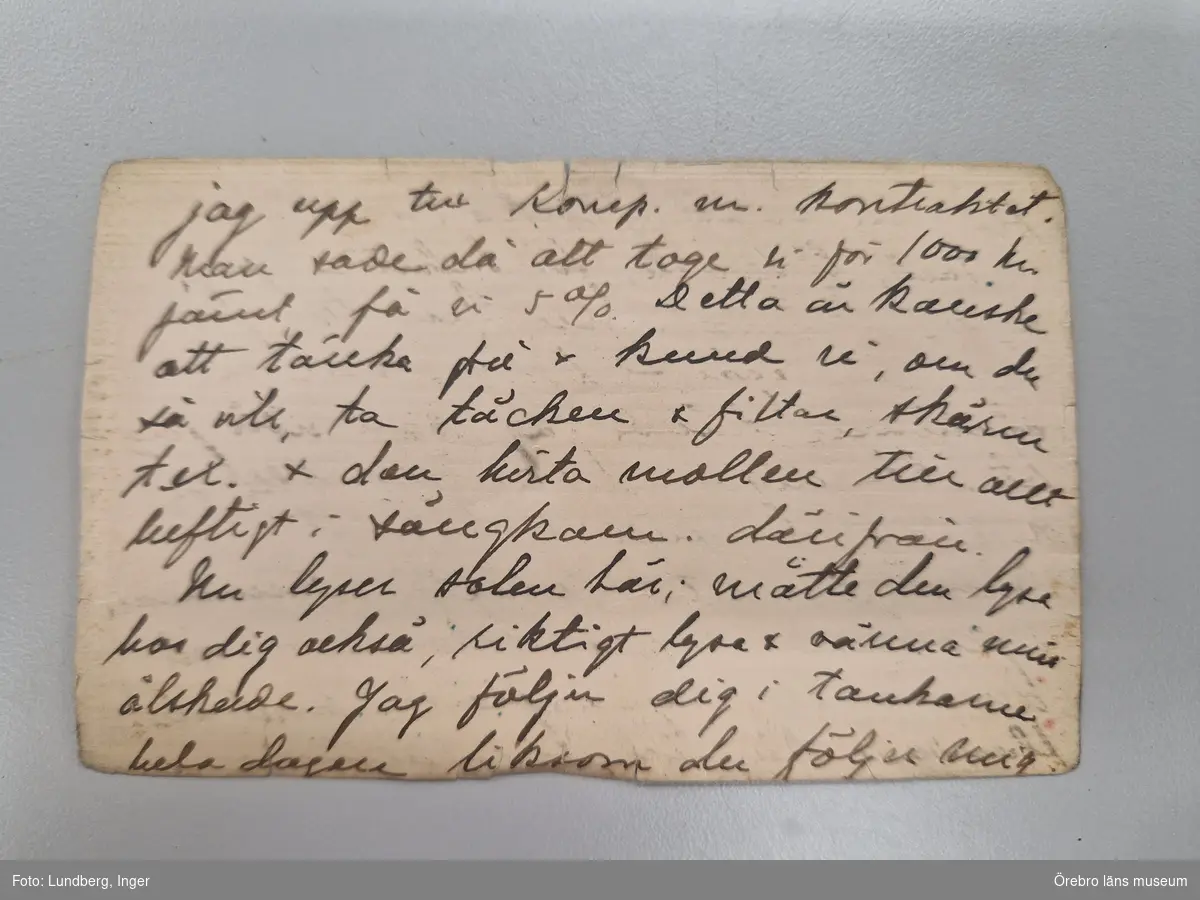 jag upp till Komp. m. kontraktet.
Man sade då att toge vi för 1000 kr.
jämt få vi 5 %. Detta är kanske
att tänka på & kund vi, om du
så vill, ta täcken & filtar, skärm
t.ex. & den hvita mollen till allt
luftigt i sängkam. därifrån.
Nu lyser solen här; måtte den lysa
hos dig också, riktigt lysa & värma min
älskade. Jag följer dig i tankarne
hela dagen liksom du följer mig.
Foto: Lundberg, Inger
Örebro läns museum